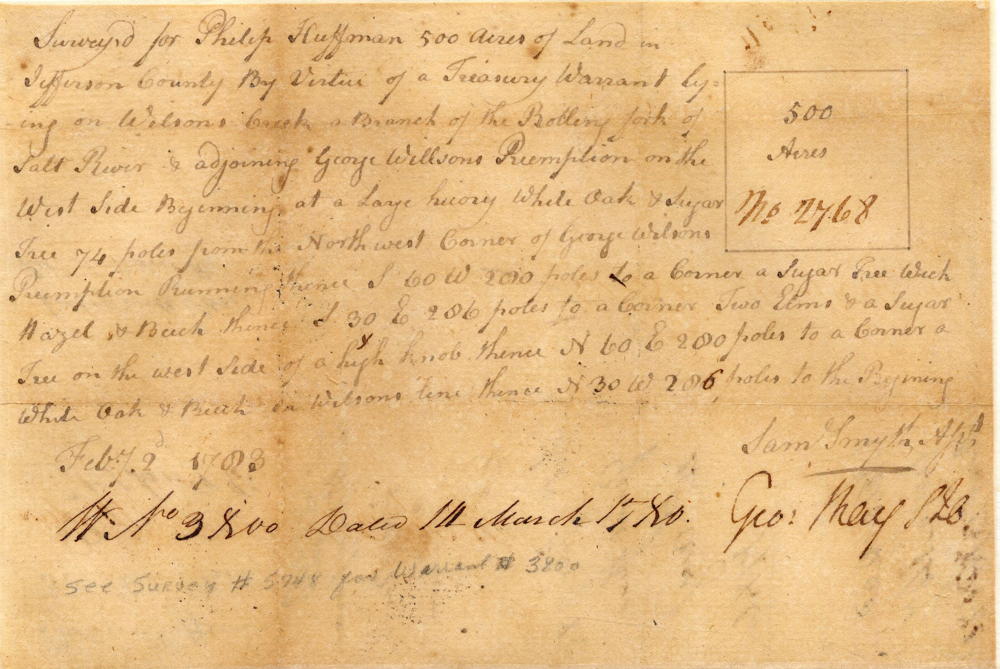 Survey'd for Philip Huffman 500 Acres of Land in
Jefferson County By Virtue of a Treasury Warrant ly=
-ing on Wilsons Creek a Branch of the Rolling fork of
Salt River & adjoining George Willsons Preemption on the
West Side Begenning at a Large hicory White Oak & Sugar
Tree 74 poles from the North west Corner of George Wilsons
Preemption Running thence S 60 W 280 poles to a Corner a Sugar Tree Wich
Hazel & Beech thence S 30 E 286 poles to a Corner Two Elms & a Sugar
Tree on the west Side of a high knob thence N 60 E 280 poles to a Corner a
White Oak & Beech in Wilsons line thence N 30 W 286 poles to the Begening
500
Acres
No 2768
Saml Smyth
Feby. 2d 1783
W. No 3800 Dated 14 March 1780.
Geo: May
See Survey # 5948 for Warrant # 3800